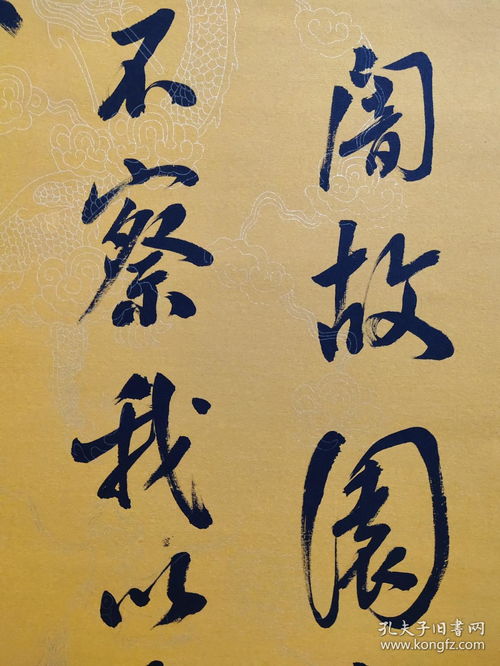 闇故園
不察我以
孔夫子旧书网
www.kongfz.com